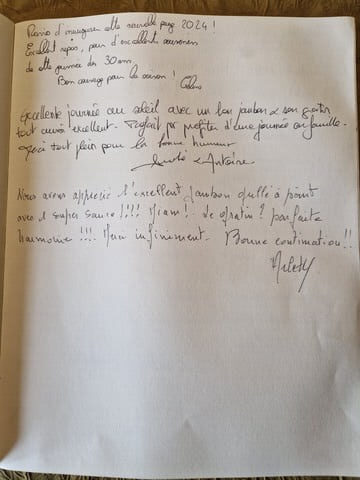 d'inaugurer cette nouvelle page 2024!
Excellent repas, pour d'excellents
de cette journée des 30 ans.
Bon courage pour la saison!
Excellente journée au soleil avec un bon jambon & son gratin
tout aussi excellent. Parfait pr profiter d'une journée en famille.
Merci tout plein pour la bonne humeur
& Antoine
Nous avons apprécié l'excellent Jambon grillé à point
avec sa super sauce!!!! Miam! Le gratin? parfaite
harmonie!!! Merci infiniment. Bonne continuation!!